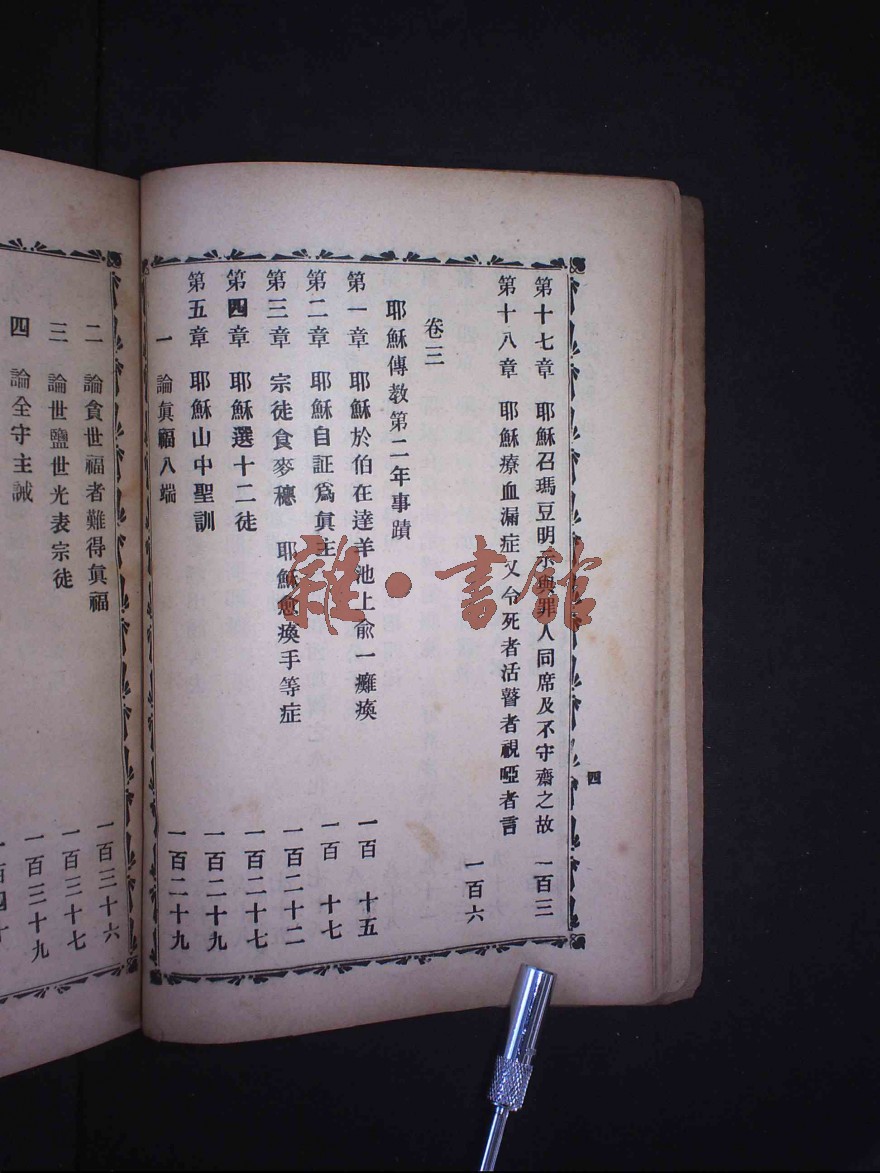 第十七章 耶穌召瑪豆明示與罪人同席及不守齋之故 一百三
第十八章 耶穌療血漏症又令死者活瞽者視啞者言 一百六
卷三
耶穌傳教第二年事蹟
第一章 耶穌於伯在達羊池上俞一癱瘓 一百十五
第二章 耶穌自証爲眞主 一百十七
第三章 宗徒食麥穗 耶穌愈瘓手等症 一百二十二
第四章 耶穌選十二徒 一百二十七
第五章 耶穌山中聖訓 一百二十九
一 論眞福八端 一百二十九
四
二 論貪世福者難得眞福 一百三十六
三 論世鹽世光表宗徒 一百三十七
四 論全守主誡 一百三十九
雜·書館